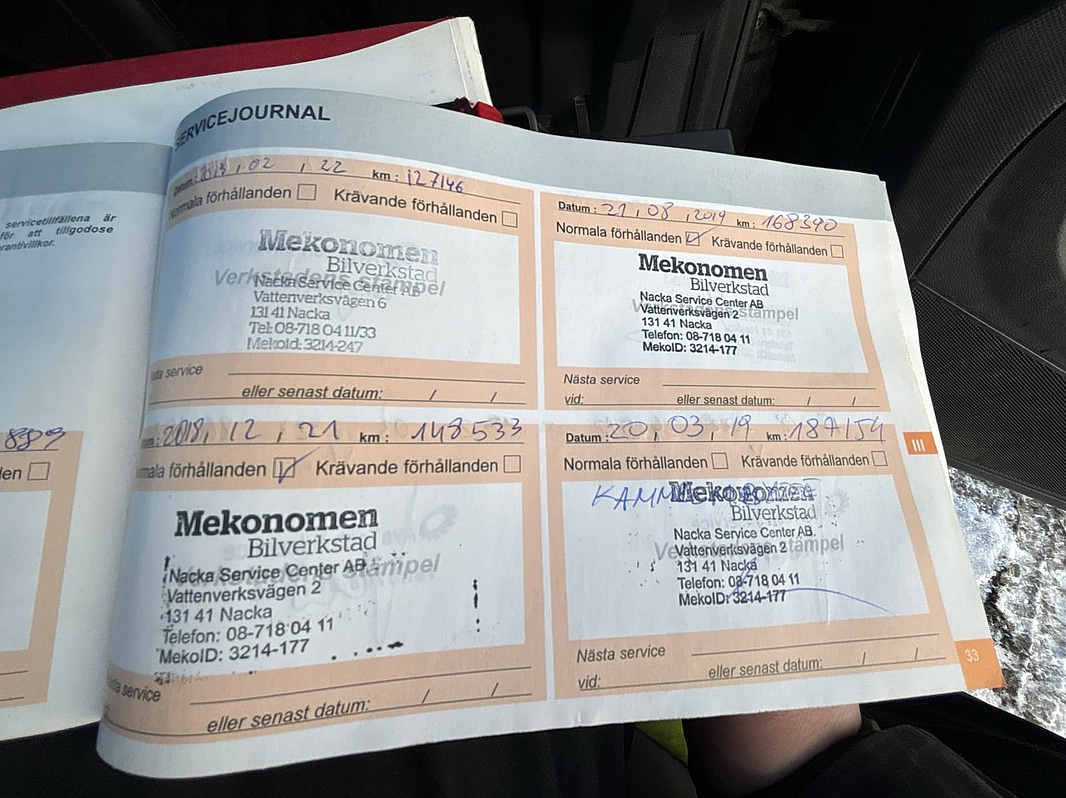 SERVICEJOURNAL
servicetillfällena är
för att tillgodose
rantivillkor.
889
den
Datum: 02 / 22 km: 127146
Normala förhållanden Krävande förhållanden
Mekonomen
Bilverkstad
Verkstadens stämpel
Nacka Service Center AB
Vattenverksvägen 6
131 41 Nacka
Tel: 08-718 04 11/33
MekoId: 3214-247
Nästa service
eller senast datum: / /
Datum: 21, 08, 2019 km: 168390
Normala förhållanden Krävande förhållanden
Mekonomen
Bilverkstad
Nacka Service Center AB
Vattenverksvägen 2
stämpel
131 41 Nacka
Telefon: 08-718 04 11
MekoID: 3214-177
Nästa service
vid: eller senast datum: / /
um: 2018, 12, 21 km: 148533
mala förhållanden Krävande förhållanden
Mekonomen
Bilverkstad
Nacka Service Center AB
stämpel
Vattenverksvägen 2
131 41 Nacka
Telefon: 08-718 04 11
MekoID: 3214-177
sta service
eller senast datum: / /
Datum: 20, 03, 19 km: 187154
Normala förhållanden Krävande förhållanden
Mekonomen
Bilverkstad
Nacka Service Center AB
Vattenverksvägen 2
stämpel
131 41 Nacka
Telefon: 08-718 04 11
MekoID: 3214-177
Nästa service
vid: eller senast datum: / /
III
33